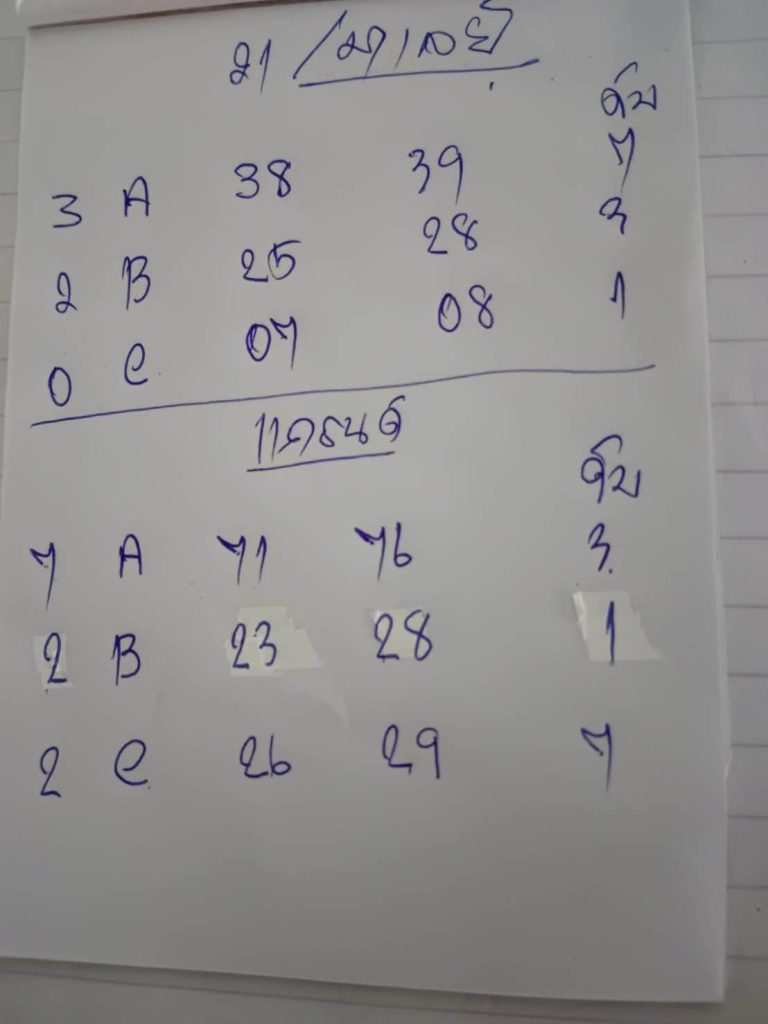 21 / มาเลย์
ดับ
3 A 38 39 7
2 B 25 28 3
0 C 07 08 1
แครนด์
ดับ
7 A 71 76 3
2 B 23 28 1
2 C 26 29 7